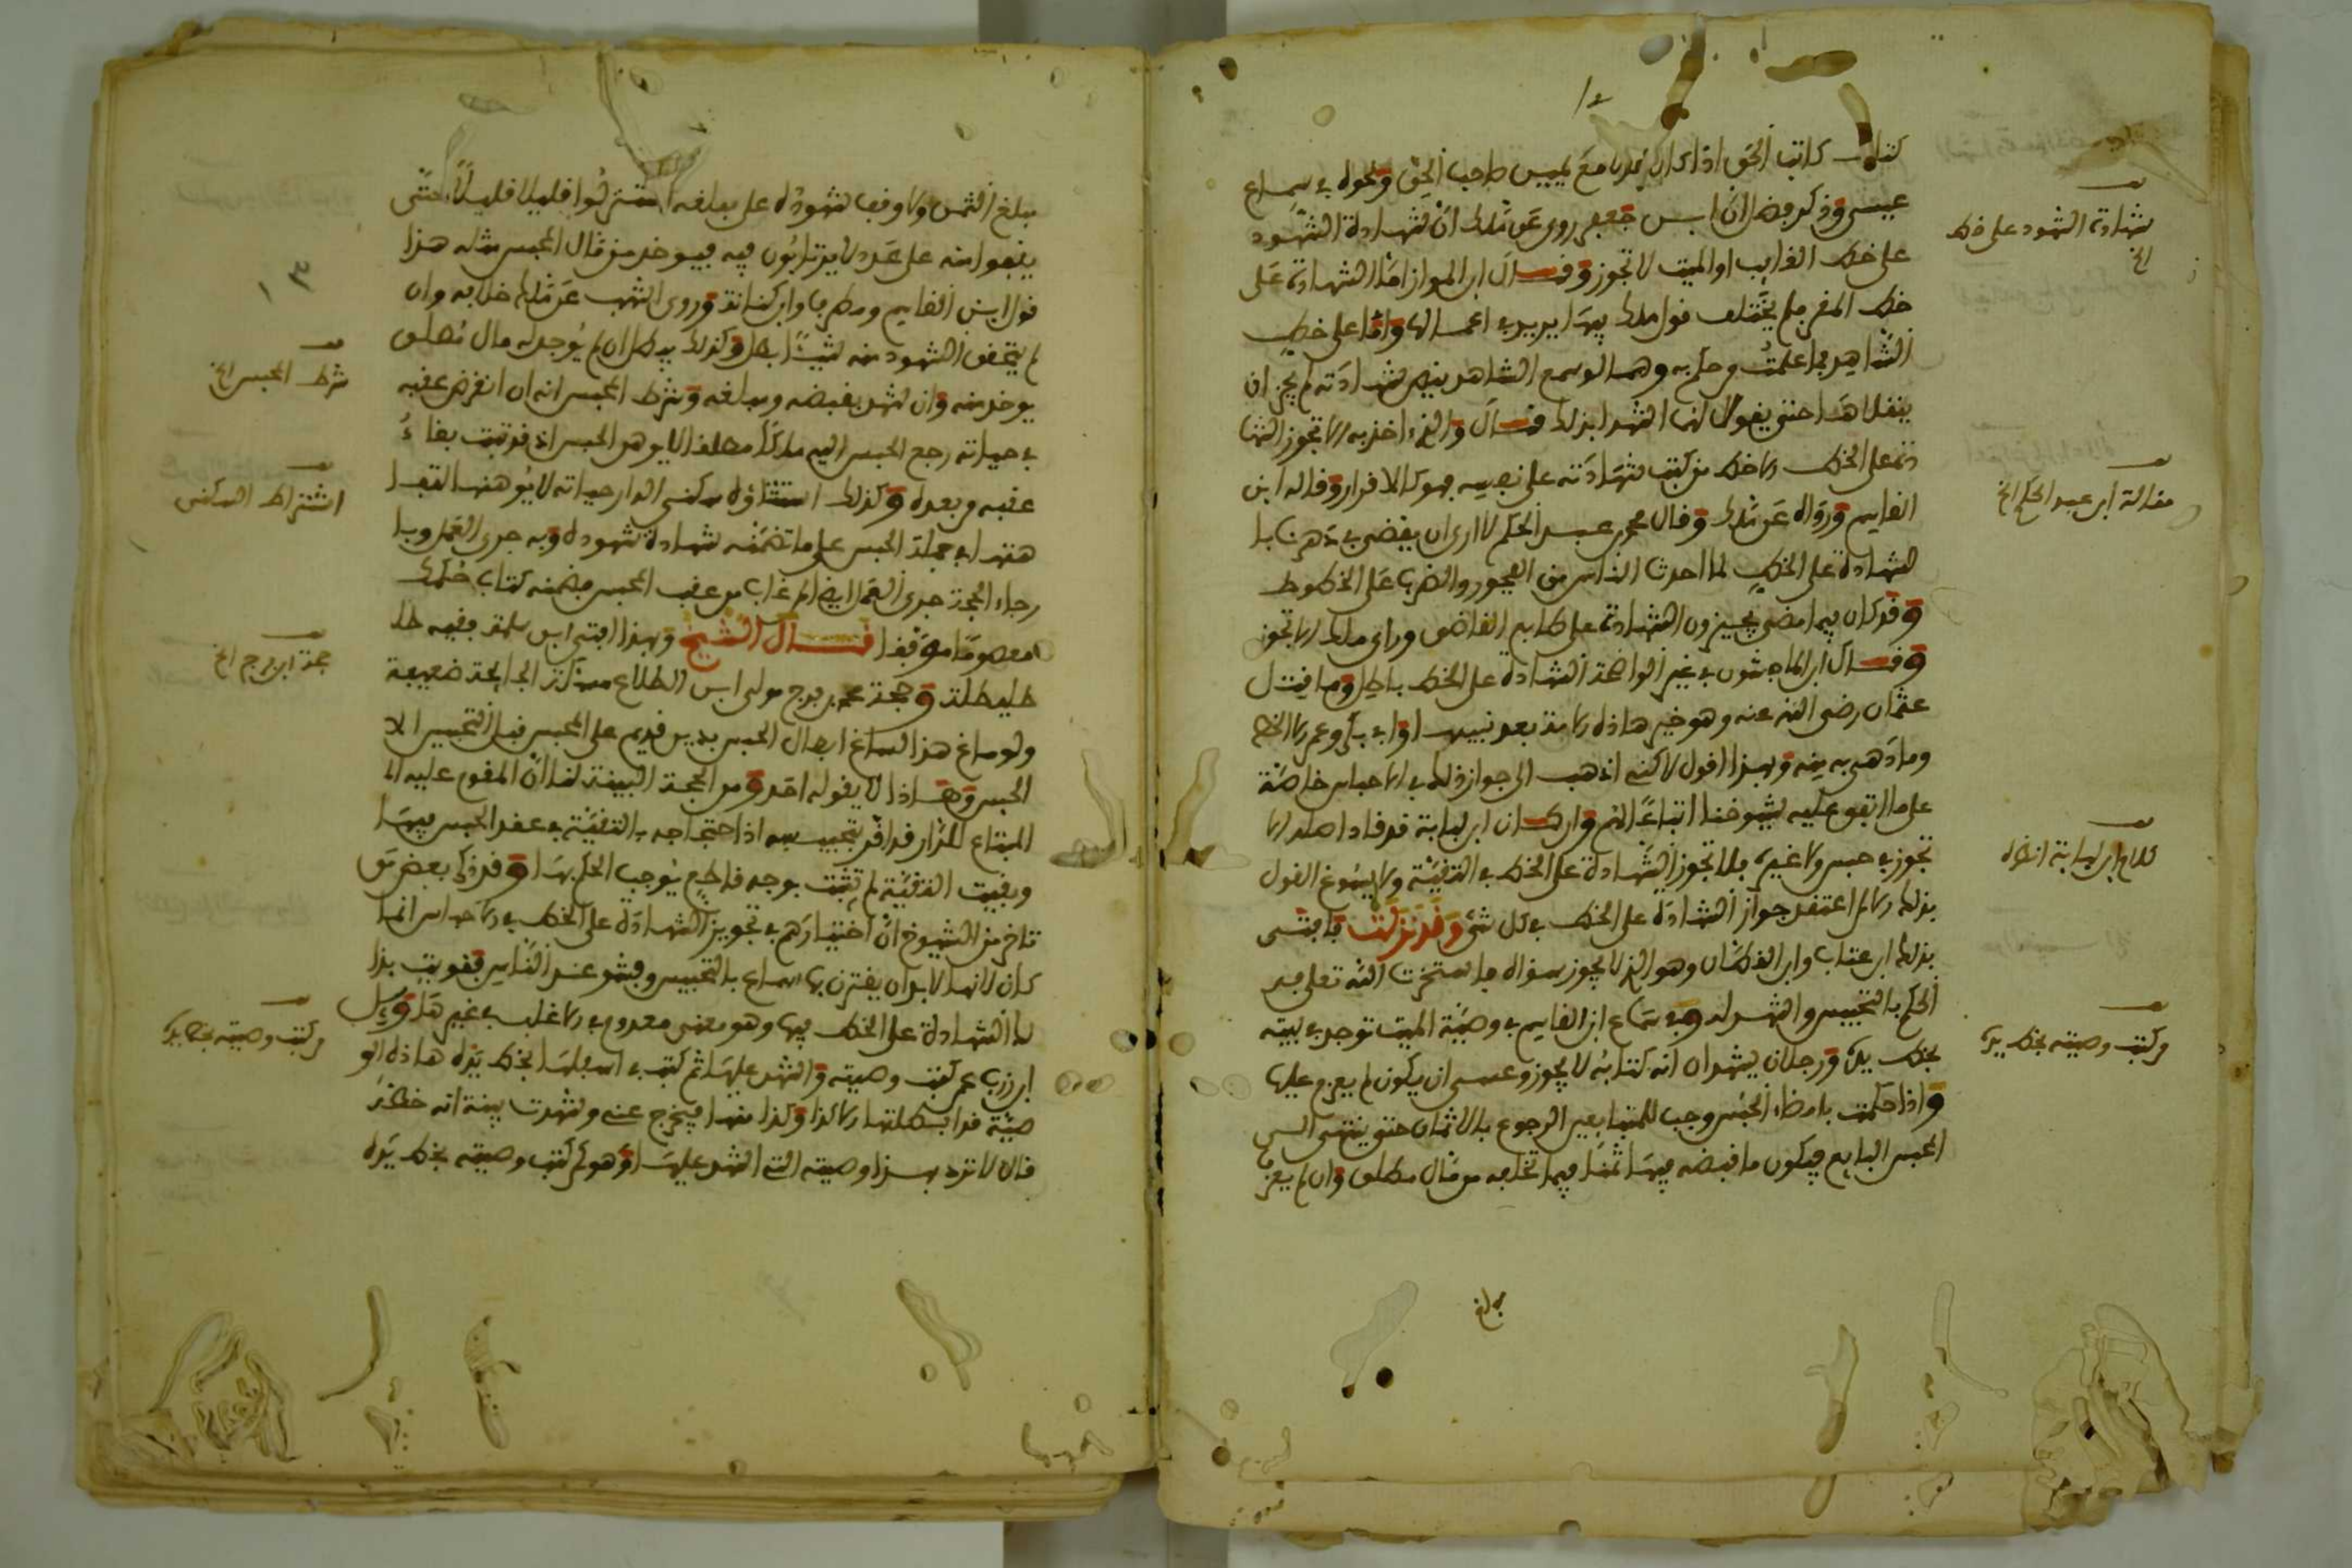 كتاب كاتب الحق اذا كان عدلا مع يمين صاحب الحق ونحوه في سماع
عيسى وذكر فضل ان ابن جعفر روى عن ملك ان شهادة الشهود
على خط الغايب او الميت لا تجوز وقال ابن المواز اما الشهادة على
خط المقر فلم يختلف قول ملك فيها يريد في اعمالها واما على خط
الشاهد فما علمت من حكم به وهما لو سمع الشاهد ينص شهادته لم يجز ان
ينقلاها حتى يقول لهما اشهدا بذلك قال والذي اخذ به الا تجوز الشها
دة على الخط الا خط من كتب شهادته على نفسه فهو كالاقرار وقاله ابن
القاسم ورواه عن ملك وقال محمد بن عبد الحكم لا ارى ان يقضى في دهرنا با
لشهادة على الخط لما احدث الناس من الفجور والضرب على الخطوط
وقد كان فيما مضى يجيزون الشهادة على طابع القاضي وراى ملك الا تجوز
وقال ابن الماجشون في غير الواضحة الشهادة على الخط باطل وما قتل
عثمان رضي الله عنه وهو خير هاذه الامة بعد نبيها وابي بكر وعمر الا الخط
وما دهي به منه وبهذا اقول لاكني اذهب الى جواز ذلك في الاحباس خاصة
على ما اتفق عليه شيوخنا اتباعا لهم وان كان ابن لبابة قد قاد اصله الا
تجوز في حبس ولا غيره فلا تجوز الشهادة على الخط في التنفية ولا يسوغ القول
بذلك الا لمن اعتقد جواز الشهادة على الخط في كل شيء وقد نزلت فافتى
بذلك ابن عتاب وابن القطان وهو الذي لا يجوز سواه فاستخرت الله تعلى في
الحكم بالتحبيس واشهد له وفي سماع ابن القاسم في وصية الميت توجد في بيته
بخط يده ورجلان يشهدان انه كتابه لا يجوز وعسى ان يكون لم يعزم عليها
واذا حكمت بامضاء الحبس وجب للمتبايعين الرجوع بالاثمان حتى ينتهى الى
المحبس البايع فيكون ما قبضه فيها ثمنا فيما تخلفه من مال مطلق وان لم يعر
شهادة الشهود على خط
الخ
مقالة ابن عبد الحكم الخ
كلام ابن لبابة انظره
من كتب وصيته بخط يده
بلغ
مبلغ الثمن ولا وقف شهوده على مبلغه استنزلوا قليلا قليلا حتى
يقفوا منه على عدد لا يرتابون فيه فيوخذ من مال المحبس مثله هذا
قول ابن القاسم ومطرف وابن كنانة وروى اشهب عن ملك خلافه وان
لم يحقق الشهود منه شيئا بطل وكذلك يبطل ان لم يوجد له مال مطلق
يوخذ منه وان شهد بقبضه ومبلغه وشرط المحبس انه ان انقرض عقبه
في حياته رجع الحبس اليه ملكا مطلقا لا يوهن الحبس اذ قد ثبت بقاء
عقبه وبعده وكذلك استثناؤه سكنى الدار حياته لا يوهنها
هنها في جملة الحبس على ما تضمنه شهادة شهوده وبه جرى العمل وبا
رجاء الحجة جرى العمل ايضا لمن غاب من عقب المحبس فضمنه كتاب حكمك
معصوما موفقا قال الشيخ وبهذا افتى ابن سلمة فقيه طل
طليطلة وحجة محمد بن فرج مولى ابن الطلاع ضعيفة
ولو ساغ هذا لساغ ابطال الحبس بدين قديم على المحبس قبل التحبيس الا
الحبس وهاذا لا يقوله احد ومن الحجة البينة لنا ان المقوم عليه الا
المبتاع للدار قد اقر بتحبيسه اذ احتجاجه بالتنفية في عقد الحبس فيها
وبقيت التنفية لم تثبت بوجه قاطع يوجب الحكم بها وقد ذكر بعض من
تاخر من الشيوخ ان اختيارهم في تجويز الشهادة على الخط في الاحباس انما
كان لانها لا بد ان يقترن بها سماع بالتحبيس وفشو عند الناس فقويت بذا
لك الشهادة على الخط فيها وهو معنى معدوم في الاغلب في غيرها وسئل
ابن زرب عمن كتب وصيته واشهد عليها ثم كتب في اسفلها بخط يده هاذه الو
صية قد ابطلتها الا كذا وكذا منها فيخرج عني وشهدت بينة انه خطه
قال لا ترد بهذا وصيته التي اشهد عليها وهو كمن كتب وصيته بخط يده
شرط المحبس الخ
اشتراط السكنى
حجة ابن فرج الخ
من كتب وصيته بخط يده